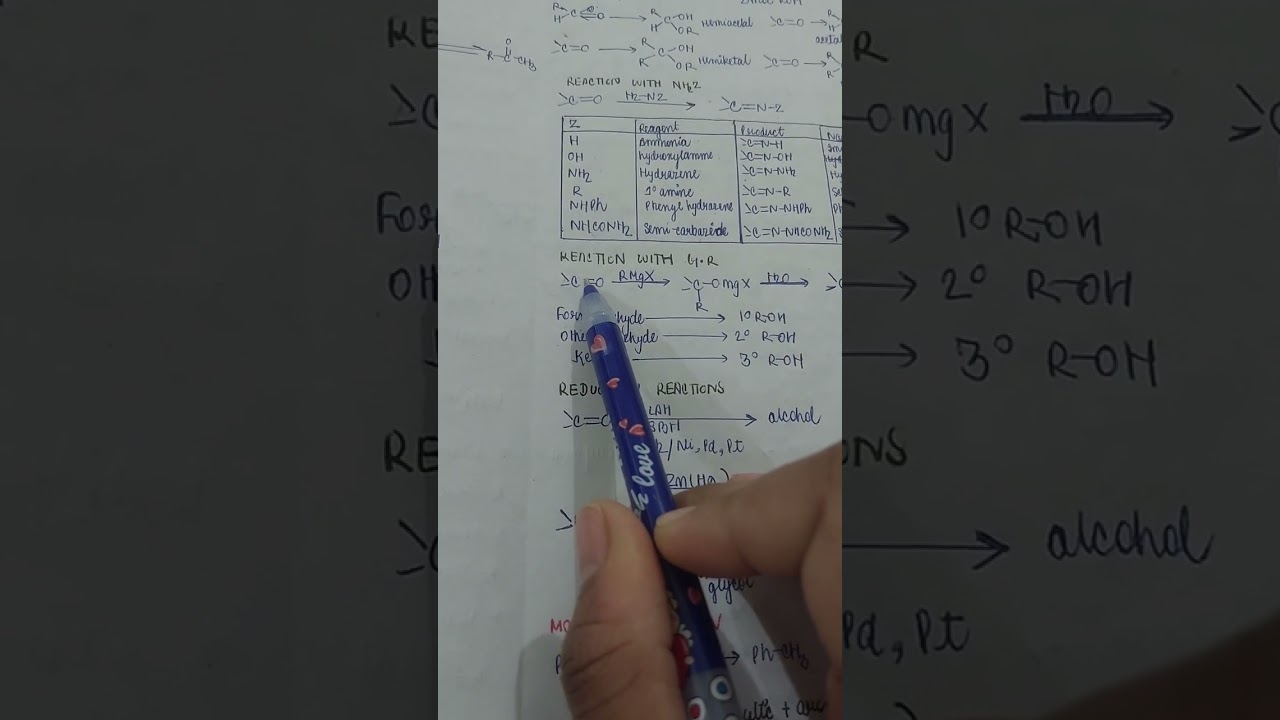 R H C=O → R H C OH OR Hemiacetal >C=O → R H
acetal
R-C-CH3 O
>C=O → R R C OH OR Hemiketal >C=O → R R
REACTION WITH NH2Z
>C=O H2-NZ → >C=N-Z
Z Reagent Product
H Ammonia >C=N-H
OH hydroxylamine >C=N-OH
NH2 Hydrazene >C=N-NH2
R 1° amine >C=N-R
NHPh Phenyl hydrazene >C=N-NHPh
NHCONH2 semi-carbazide >C=N-NHCONH2
REACTION WITH G.R
>C=O RMgX → >C-OmgX H2O →
R
→ 1° R-OH
→ 2° R-OH
→ 3° R-OH
REACTIONS
>C=O LAH → alcohol
/Ni, Pd, Pt
Zn(Hg)
glycol
→ Ph-CH3